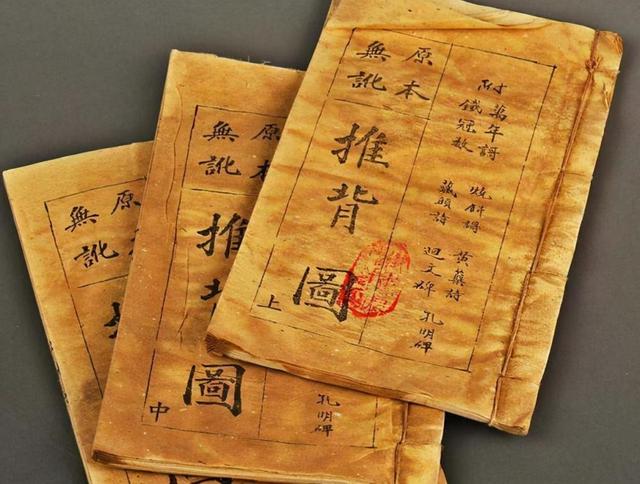 附萬年謌 燒餅謌 黃蘗詩
鐵冠數 藏頭詩 迴文碑 孔明碑
原本
無訛
推背圖
上
孔明碑
原本
無訛
推背圖
中
原本
無訛